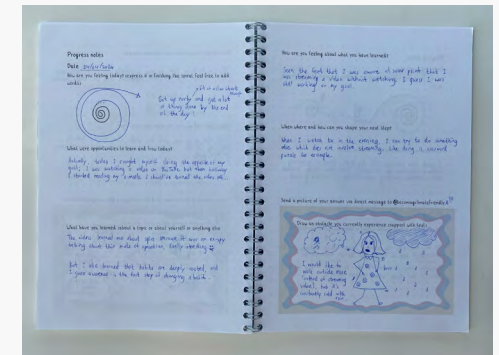 Progress notes
Date
How are you feeling today? (express it in finishing the spiral, feel free to add
words)
Got up early and got a lot
of things done by the end
of the day!
What were opportunities to learn and grow today?
Actually, today I caught myself doing the opposite of my
goal; I was watching a video on YouTube but then
I started reading my emails. I should've turned the video off...
What have you learned (about a topic or about yourself or anything else)
The video learned me about
talking about their mode of operation, really interesting
But I also learned that habits are deeply rooted, and
I guess awareness is the first step of changing a habit.
How are you feeling about what you have learned?
Seen the fact that I was aware at some point that I
was streaming a video without watching, I guess I was
still working on my goal.
When where and how can you shape your next step?
When I watch tv in the evening, I can try to do something
else which does not involve streaming. Like doing a
puzzle for example.
Send a picture of your answer via direct message to
Draw an obstacle you currently experience
I would like to
work outside more
instead of streaming
but it's
constantly